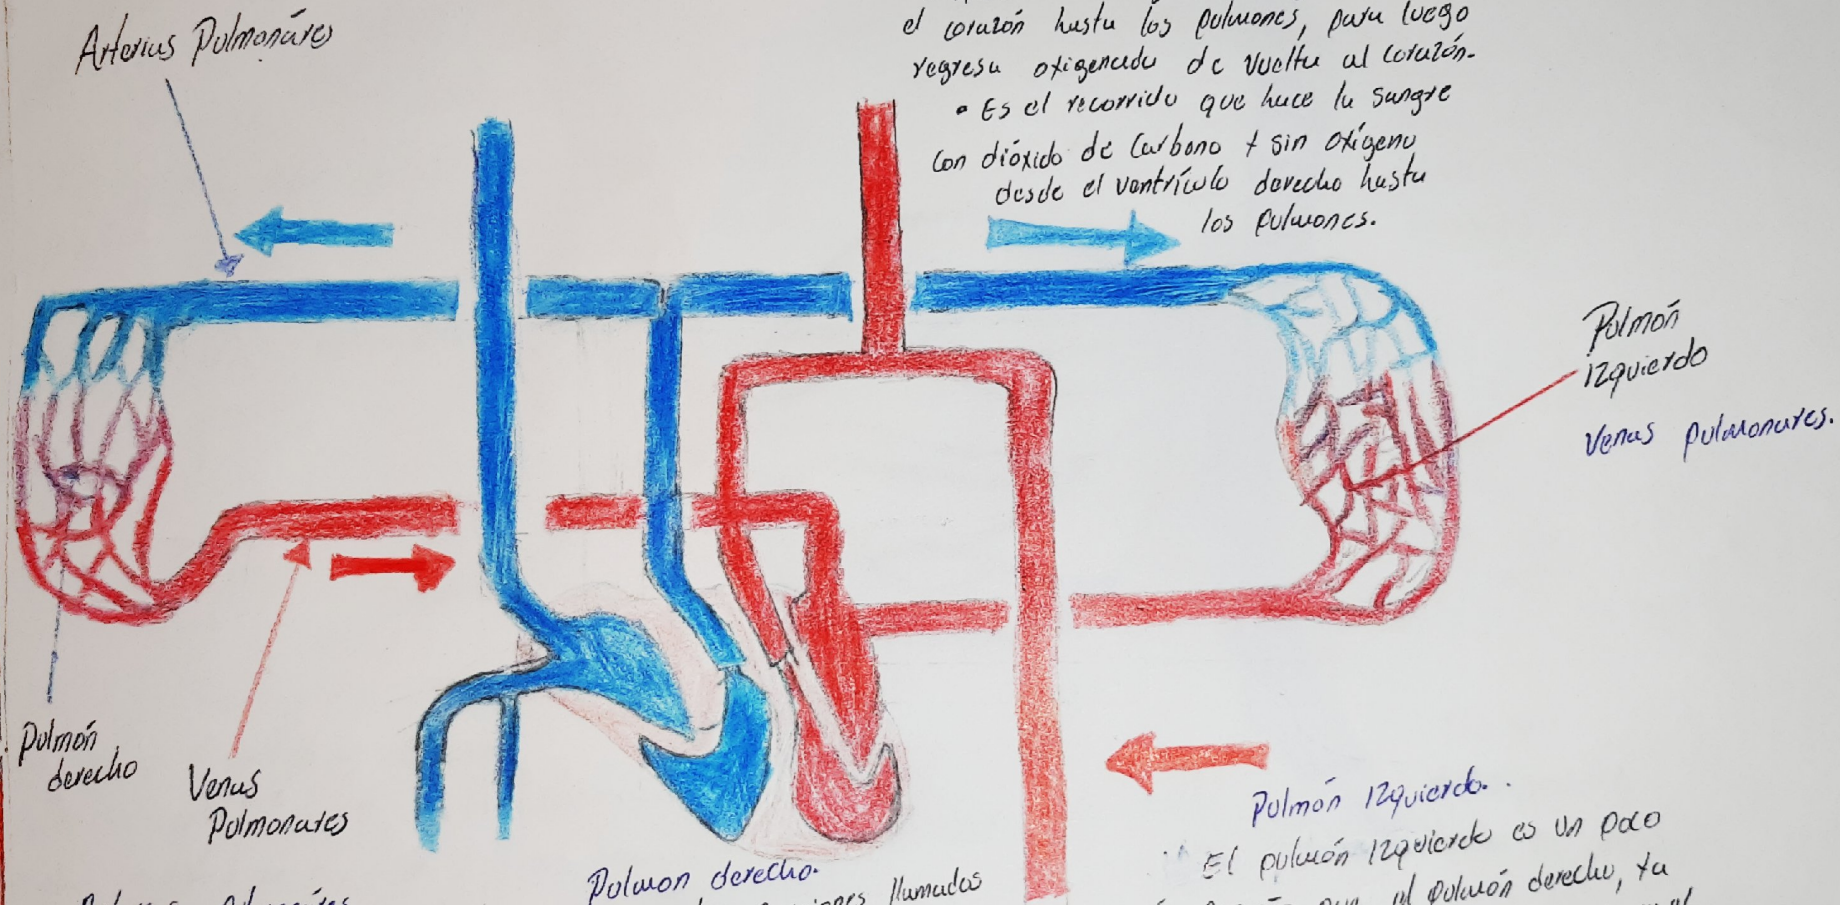 el corazón hasta los pulmones, para luego
regresa oxigenada de vuelta al corazón.
• Es el recorrido que hace la sangre
con dióxido de Carbono + sin oxígeno
desde el ventrículo derecho hasta
los pulmones.
Arterias Pulmonáres
Pulmón
izquierdo
Venas pulmonares.
Pulmón
derecho
Venas
Pulmonares
Pulmon derecho.
llamadas
Pulmón Izquierdo.
El pulmón izquierdo es un poco
el pulmón derecho, ya